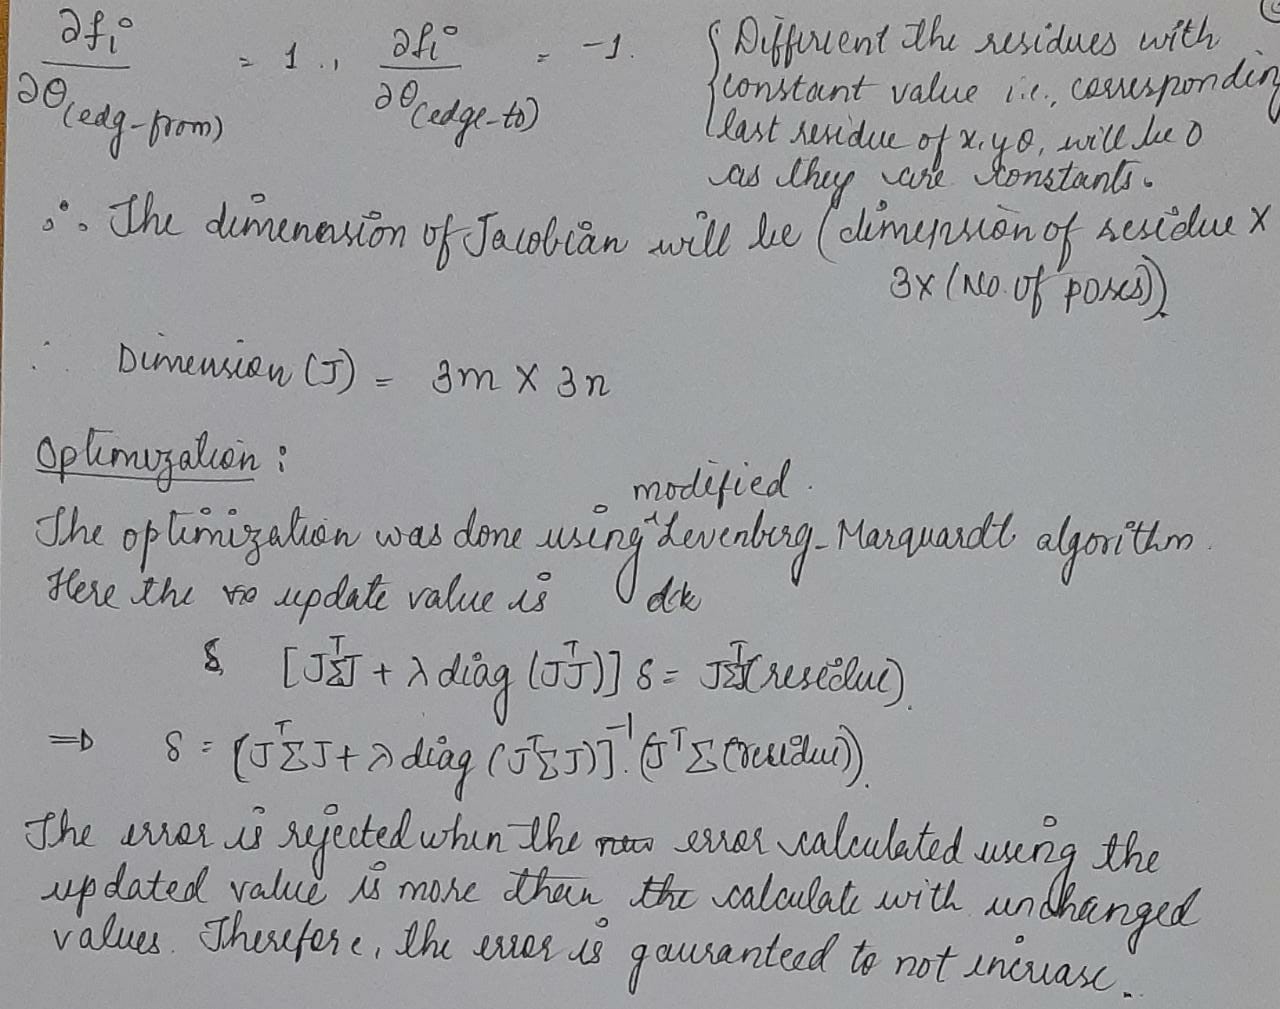 ∂fᵢ/∂θ(edg-from) = 1 ., ∂fᵢ/∂θ(edge-to) = -1.
{ Differient the residues with
constant value i.e., corresponding
last residue of x, y θ, will be 0
as they are constants.
∴ The dimenension of Jacobian will be (dimension of residue X
3x (No. of poses))
∴ Dimension (J) = 3m X 3n
Optimization :
modified.
The optimization was done using Levenberg-Marquardt algorithm.
Here the update value is
[JᵀΣJ + λ diag (JᵀJ)] δ = JᵀΣ(residue).
⇒ δ = [JᵀΣJ + λ diag (JᵀΣJ)]⁻¹. (JᵀΣ (residue)).
The error is rejected when the error calculated using the
updated value is more than the calculate with unchanged
values. Therefore, the error is gauranteed to not increase.